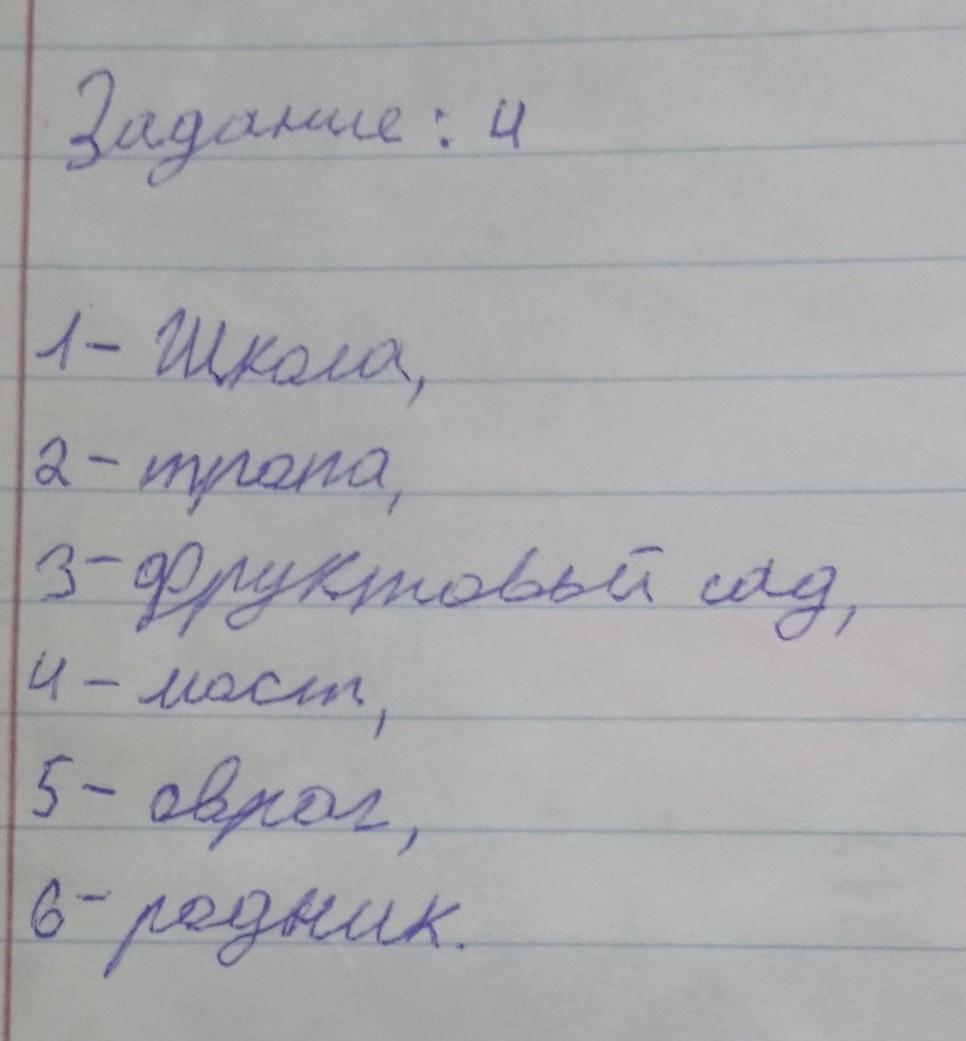 Задание: 4
1- Школа,
2- тропа,
3- Фруктовый сад,
4- мост,
5- овраг,
6- родник.